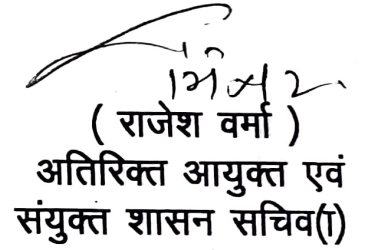 ( राजेश वर्मा )
अतिरिक्त आयुक्त एवं
संयुक्त शासन सचिव(I)